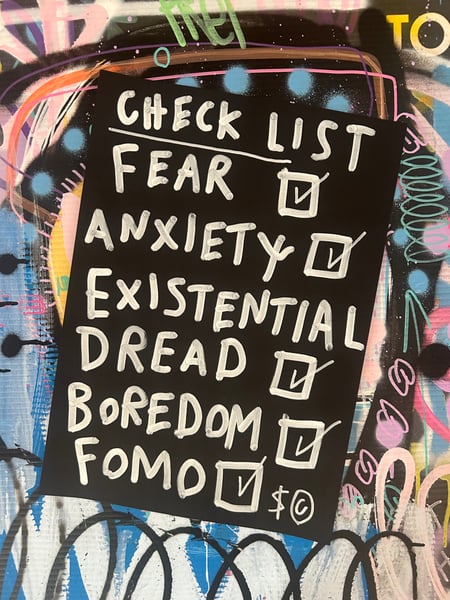 TO
CHECK LIST
FEAR ☑
ANXIETY ☑
EXISTENTIAL
DREAD ☑
BOREDOM ☑
FOMO ☑ $©